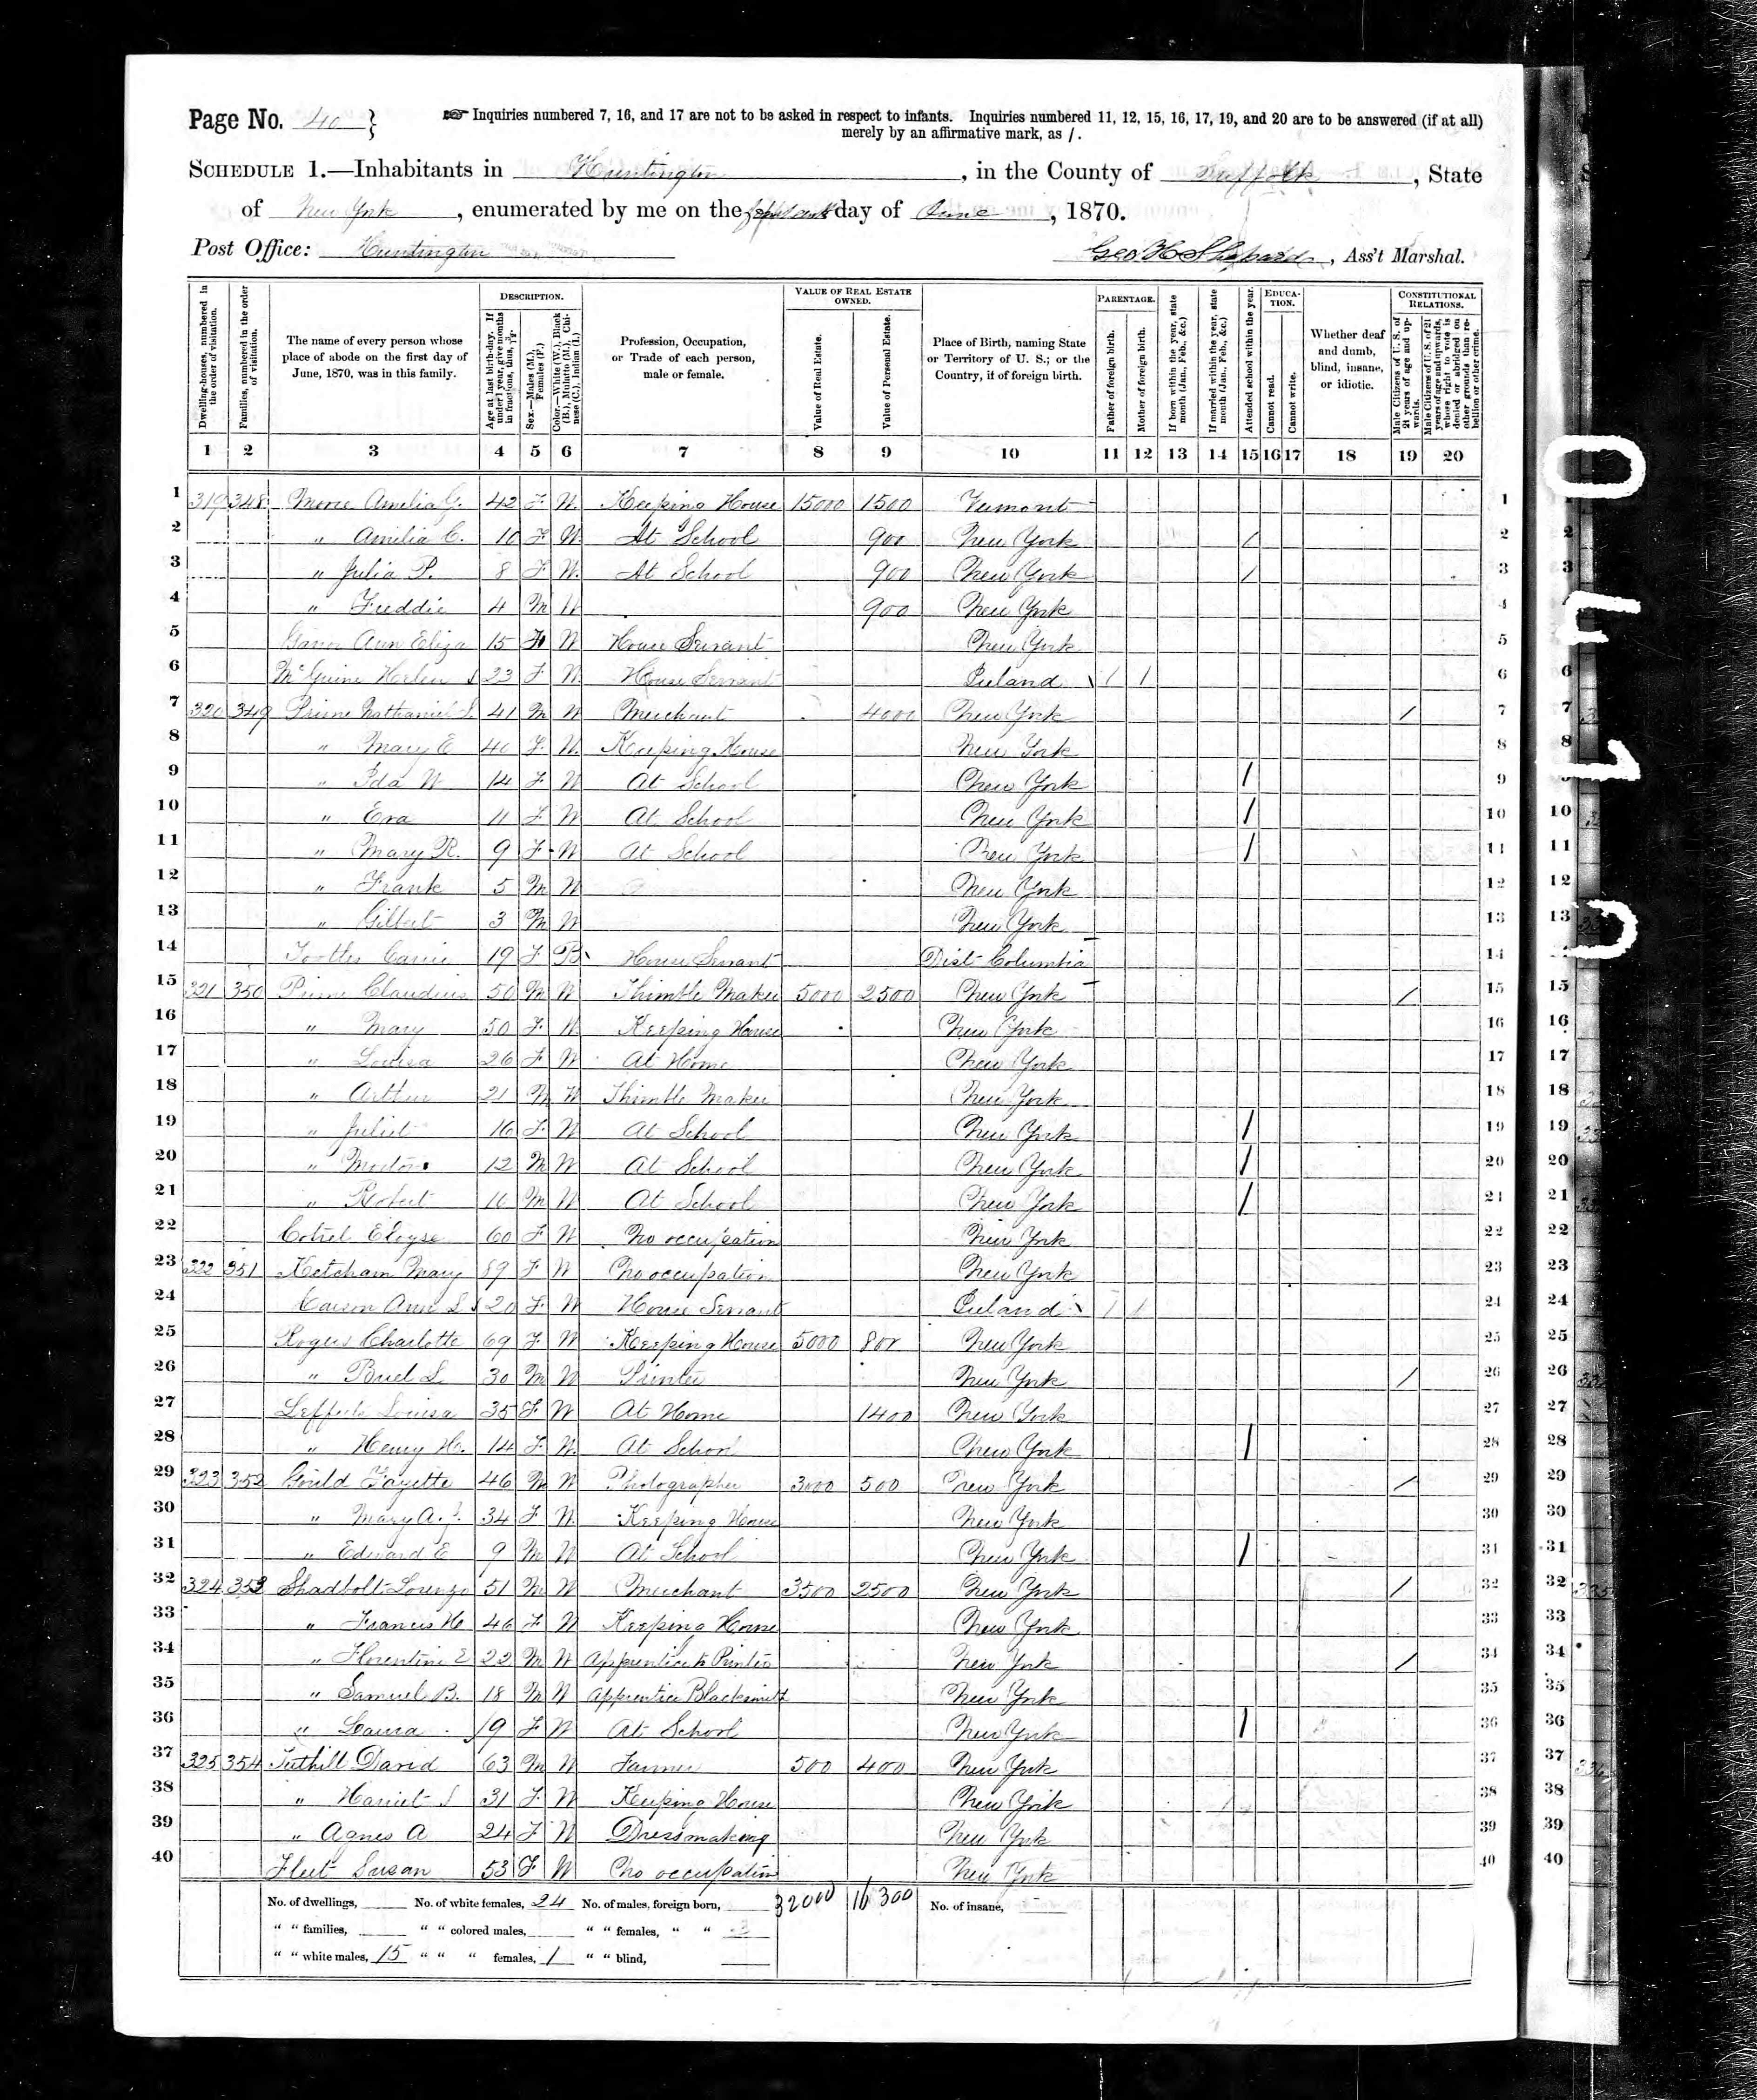 Page No. 40 } ☞ Inquiries numbered 7, 16, and 17 are not to be asked in respect to infants. Inquiries numbered 11, 12, 15, 16, 17, 19, and 20 are to be answered (if at all)
merely by an affirmative mark, as /.
SCHEDULE 1.—Inhabitants in Huntington, in the County of Suffolk, State
of New York, enumerated by me on the day of June, 1870.
Post Office: Huntington Geo. H. Shepard, Ass't Marshal.
Dwelling-houses, numbered in the order of visitation.
Families, numbered in the order of visitation.
The name of every person whose place of abode on the first day of June, 1870, was in this family.
DESCRIPTION.
Age at last birth-day. If under 1 year, give months in fractions, thus, 3/12.
Sex.—Males (M.), Females (F.)
Color.—White (W.), Black (B.), Mulatto (M.), Chinese (C.), Indian (I.)
Profession, Occupation, or Trade of each person, male or female.
VALUE OF REAL ESTATE OWNED.
Value of Real Estate.
Value of Personal Estate.
Place of Birth, naming State or Territory of U. S.; or the Country, if of foreign birth.
PARENTAGE.
Father of foreign birth.
Mother of foreign birth.
If born within the year, state month (Jan., Feb., &c.)
If married within the year, state month (Jan., Feb., &c.)
Attended school within the year.
EDUCATION.
Cannot read.
Cannot write.
Whether deaf and dumb, blind, insane, or idiotic.
CONSTITUTIONAL RELATIONS.
Male Citizens of U. S. of 21 years of age and upwards.
Male Citizens of U. S. of 21 years of age and upwards, whose right to vote is denied or abridged on other grounds than rebellion or other crime.
1 2 3 4 5 6 7 8 9 10 11 12 13 14 15 16 17 18 19 20
1 319 348 Amelia G. 42 F W Keeping House 15000 1500 Vermont 1
2 " Amelia C. 10 F W At School 900 New York / 2
3 " Julia P. 8 F W At School 900 New York / 3
4 " Freddie 4 M W 900 New York 4
5 Ann Eliza 15 F W House Servant New York 5
6 McGuire 23 F W House Servant Ireland / / 6
7 320 349 Prime Nathaniel S. 41 M W Merchant 4000 New York / 7
8 " Mary E 40 F W Keeping House New York 8
9 " Ida W 14 F W At School New York / 9
10 " Eva 11 F W At School New York / 10
11 " Mary R. 9 F W At School New York / 11
12 " Frank 5 M W New York 12
13 " Gilbert 3 M W New York 13
14 Carrie 19 F B House Servant Dist Columbia 14
15 321 350 Prime Claudius 50 M W Thimble Maker 5000 2500 New York / 15
16 " Mary 50 F W Keeping House New York 16
17 " Louisa 26 F W At Home New York 17
18 " Arthur 21 M W Thimble Maker New York 18
19 " Juliet 16 F W At School New York / 19
20 " 12 M W At School New York / 20
21 " Robert 10 M W At School New York / 21
22 60 F W No occupation New York 22
23 322 351 Ketcham Mary 89 F W No occupation New York 23
24 Ann 20 F W House Servant Ireland / / 24
25 Rogers Charlotte 69 F W Keeping House 5000 800 New York 25
26 " Buel S 30 M W Printer New York / 26
27 Lefferts Louisa 35 F W At Home 1400 New York 27
28 " Henry H. 14 F W At School New York / 28
29 323 352 Gould Fayette 46 M W Photographer 3000 500 New York / 29
30 " Mary A. J. 34 F W Keeping House New York 30
31 " Edward E 9 M W At School New York / 31
32 324 353 Shadbolt Lorenzo 51 M W Merchant 3500 2500 New York / 32
33 " Francis H 46 F W Keeping House New York 33
34 " Florentine E 22 M W Apprentice to Printer New York / 34
35 " Samuel B. 18 M W Apprentice Blacksmith New York 35
36 " Laura 9 F W At School New York / 36
37 325 354 Tuthill David 63 M W Farmer 500 400 New York 37
38 " Harriet S 31 F W Keeping House New York 38
39 " Agnes A 24 F W Dressmaking New York 39
40 Fleet Susan 53 F W No occupation New York 40
No. of dwellings, No. of white females, 24 No. of males, foreign born, 32000 16300 No. of insane,
" " families, " " colored males, " " females, " " 2
" " white males, 15 " " " females, 1 " " blind,